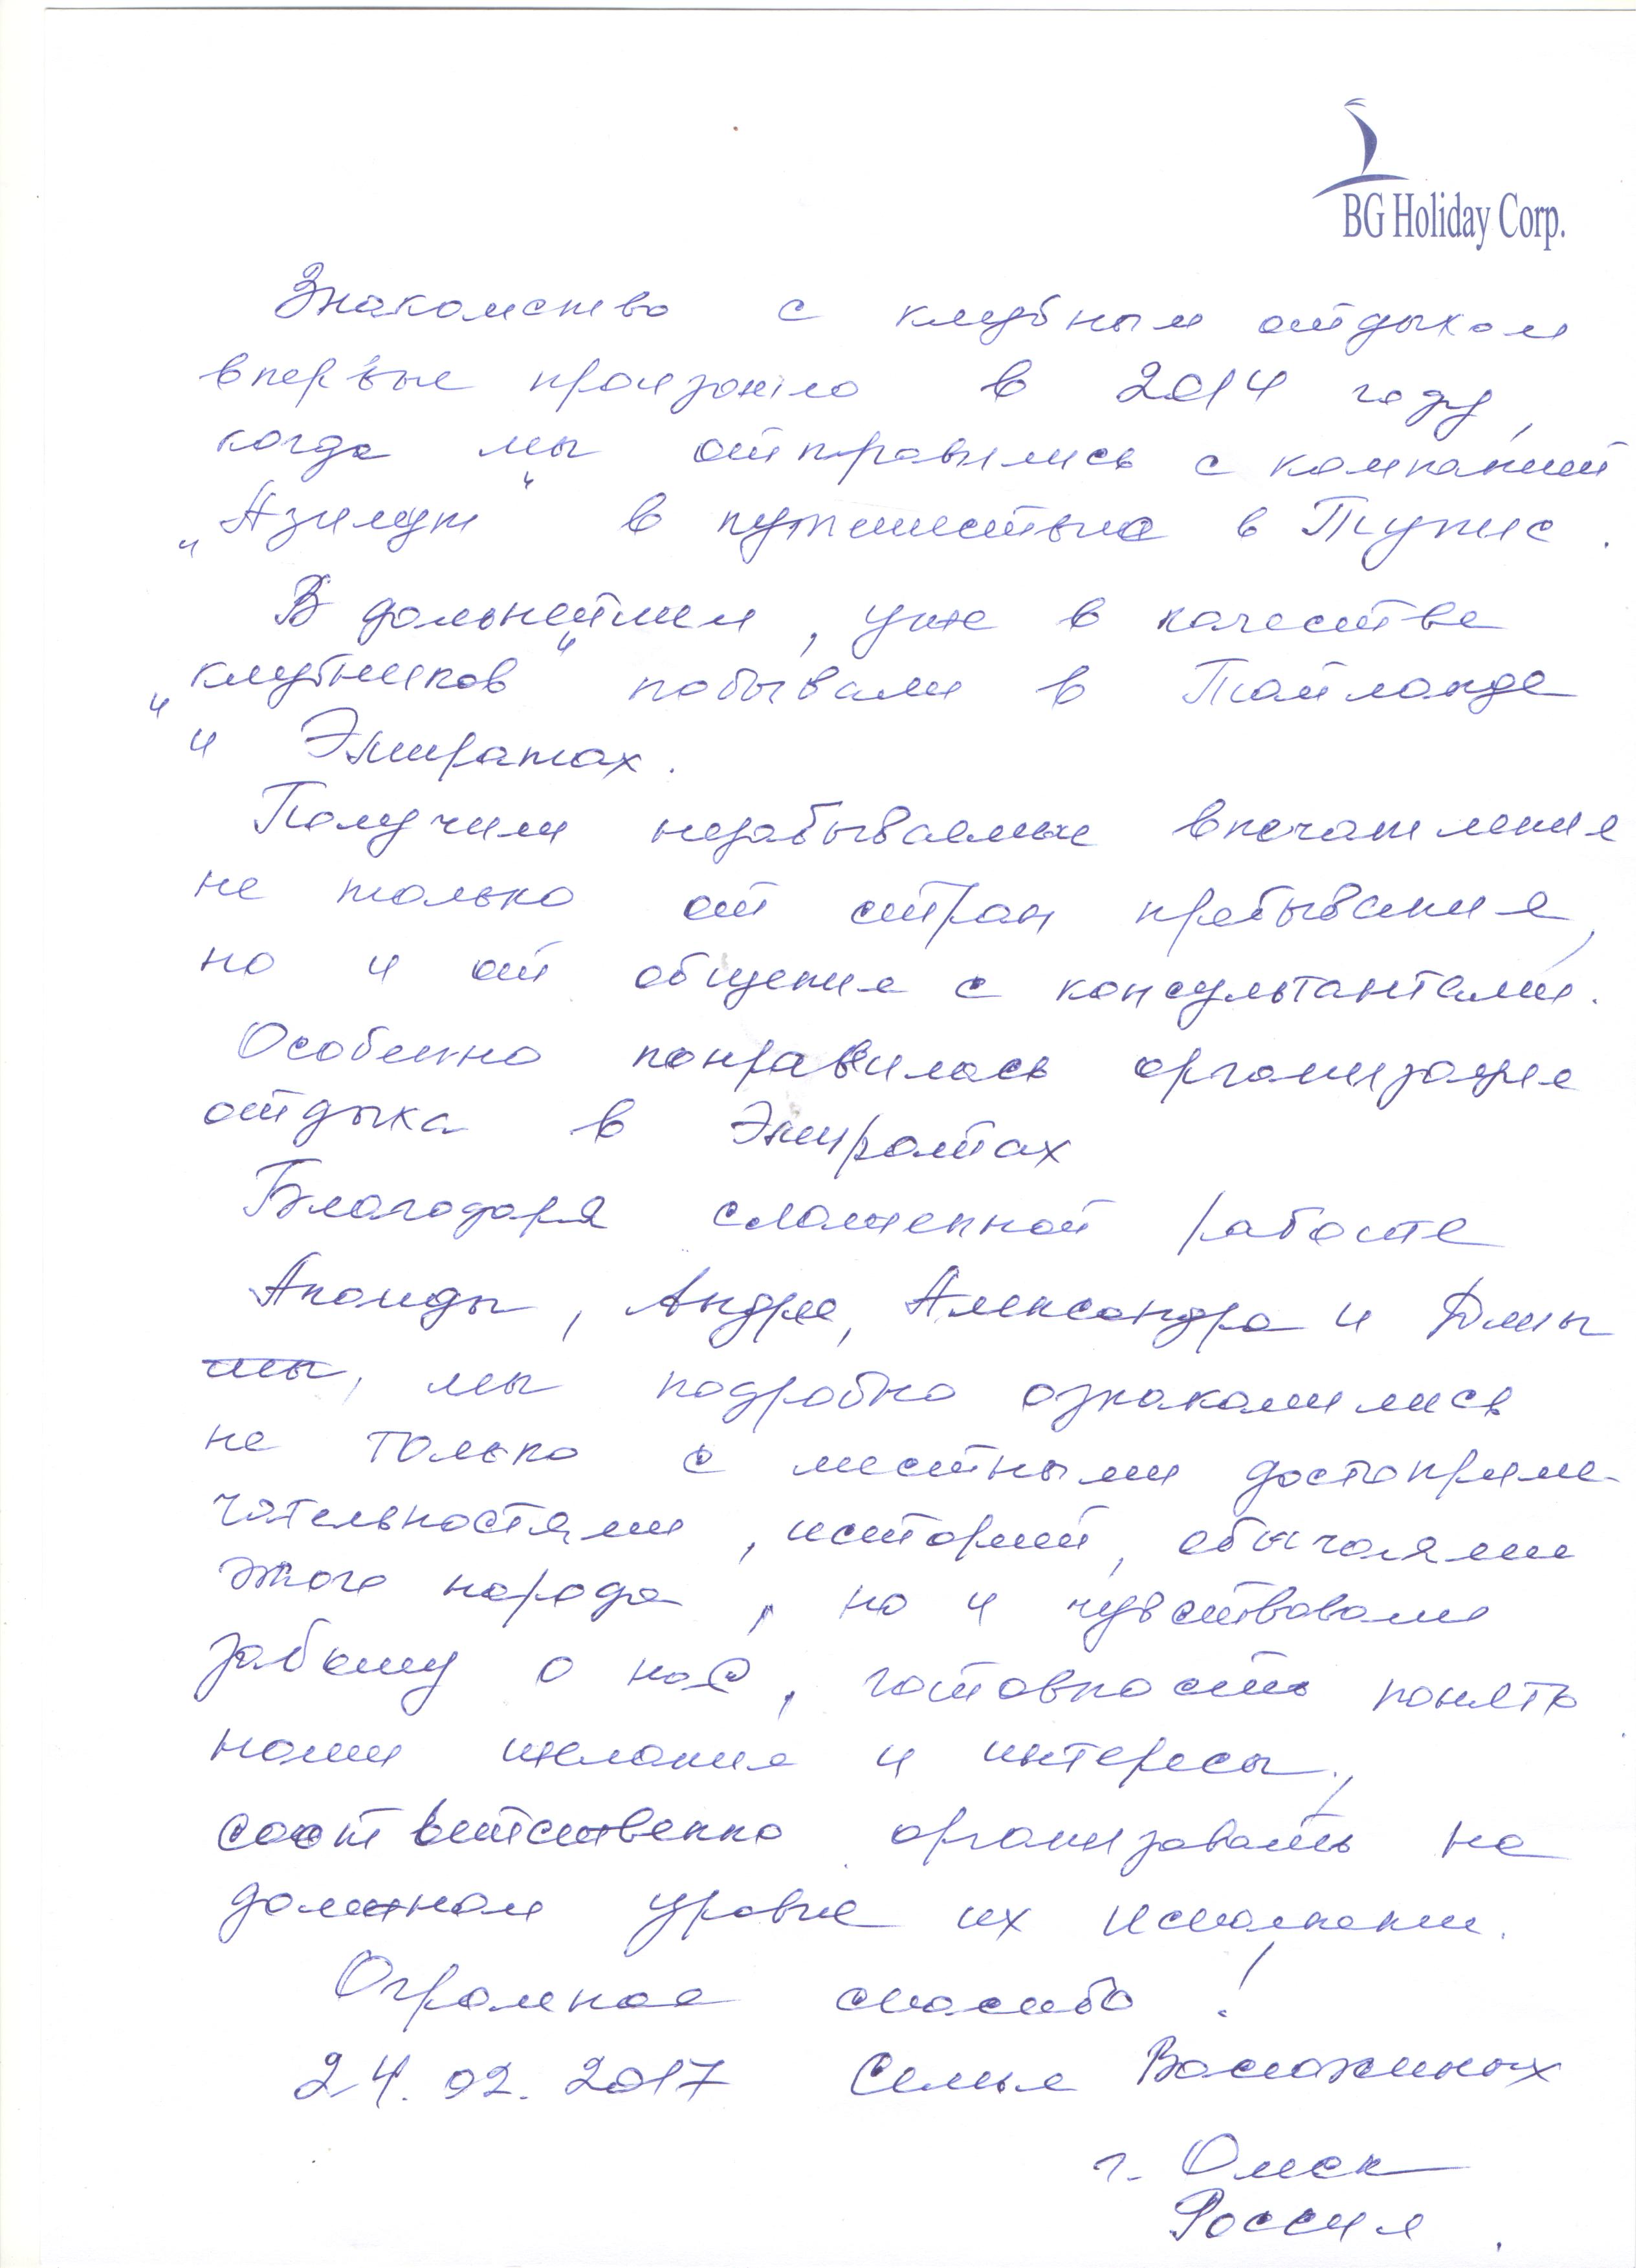 BG Holiday Corp.
Знакомство с клубным отдыхом
впервые произошло в 2014 году,
когда мы отправились с компанией
„Азимут“ в путешествие в Тунис.
В дальнейшем, уже в качестве
„клубников“ побывали в Тайланде
и Эмиратах.
Получили незабываемые впечатления
не только от стран пребывания,
но и от общения с консультантами.
Особенно понравилась организация
отдыха в Эмиратах
Благодаря слаженной работе
Андрея, Александра и Димы
мы, мы подробно ознакомились
не только с местными достоприме-
чательностями, историей, обычаями
этого народа, но и чувствовали
заботу о нас, готовность понять
наши желания и интересы,
соответственно организовать на
должном уровне их исполнение.
Огромное спасибо!
24.02.2017 Семья
г. Омск
Россия.